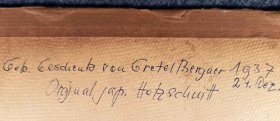 Geb. Geschenk von Gretel Bergner 1937
Original jap. Holzschnitt 24. Dez.